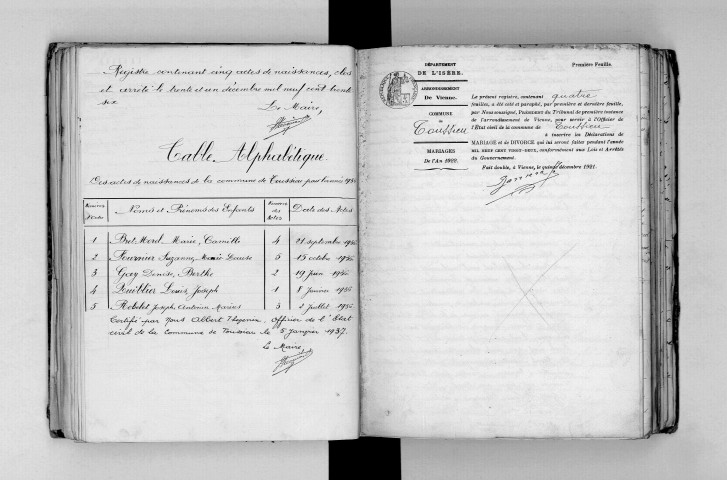 Registre contenant cinq actes de naissances, clos
et arrêté le trente et un décembre mil neuf cent trente
six
Le Maire,
Table Alphabétique
Des actes de naissances de la commune de Toussieu pour l'année 1936
Numéros d'Ordre Noms et Prénoms des Enfants Numéros des Actes Date des Actes
1 Marie, Camille 4 21 septembre 1936
2 Fournier Suzanne Marie Louise 5 15 octobre 1936
3 Gay Denise, Berthe 2 19 Juin 1936
4 Quiblier Louis Joseph 1 8 Janvier 1936
5 Joseph Antonin Marius 3 2 Juillet 1936
Certifié par Nous Albert Officier de l'Etat
civil de la Commune de Toussieu le 5 Janvier 1937.
Le Maire,
DÉPARTEMENT
DE L'ISÈRE.
ARRONDISSEMENT
De Vienne.
COMMUNE
de
Toussieu
MARIAGES
De l'An 1922.
Première Feuille.
Le présent registre, contenant quatre
feuilles, a été coté et paraphé, par première et dernière feuille,
par Nous soussigné, Président du Tribunal de première instance
de l'arrondissement de Vienne, pour servir à l'Officier de
l'Etat civil de la commune de Toussieu
à inscrire les Déclarations de
MARIAGE et de DIVORCE qui lui seront faites pendant l'année
MIL NEUF CENT VINGT-DEUX, conformément aux Lois et Arrêtés
du Gouvernement.
Fait double, à Vienne, le quinze décembre 1921.